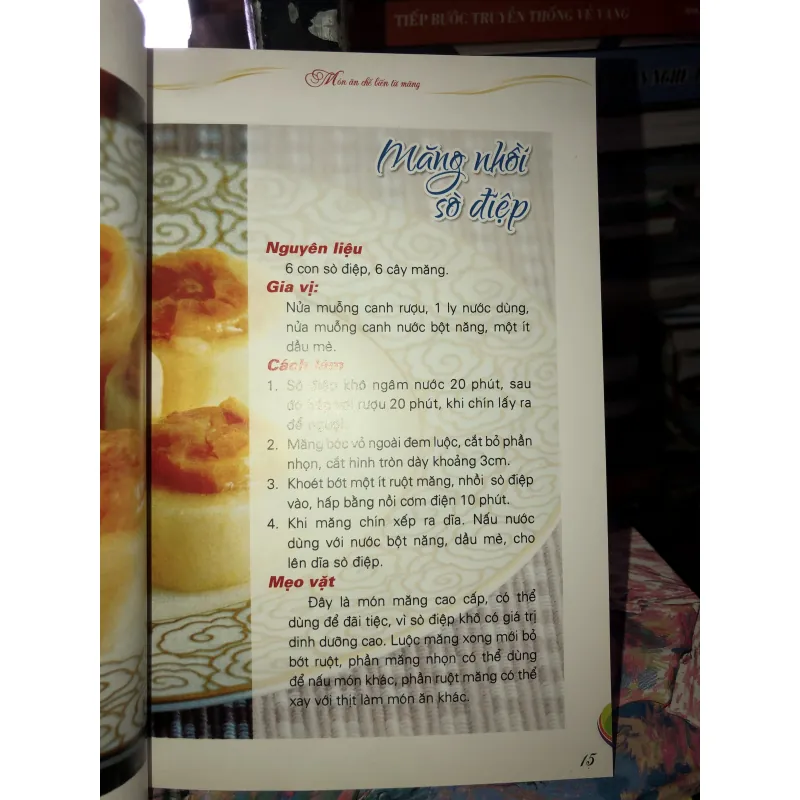 TIẾP BƯỚC TRUYỀN THỐNG VẺ VANG
Món ăn chế biến từ măng
Măng nhồi
sò điệp
Nguyên liệu
6 con sò điệp, 6 cây măng.
Gia vị:
Nửa muỗng canh rượu, 1 ly nước dùng,
nửa muỗng canh nước bột năng, một ít
dầu mè.
Cách làm
1. Sò điệp khô ngâm nước 20 phút, sau
đó rượu 20 phút, khi chín lấy ra
để nguội.
2. Măng bóc vỏ ngoài đem luộc, cắt bỏ phần
nhọn, cắt hình tròn dày khoảng 3cm.
3. Khoét bớt một ít ruột măng, nhồi sò điệp
vào, hấp bằng nồi cơm điện 10 phút.
4. Khi măng chín xếp ra dĩa. Nấu nước
dùng với nước bột năng, dầu mè, cho
lên dĩa sò điệp.
Mẹo vặt
Đây là món măng cao cấp, có thể
dùng để đãi tiệc, vì sò điệp khô có giá trị
dinh dưỡng cao. Luộc măng xong mới bỏ
bớt ruột, phần măng nhọn có thể dùng
để nấu món khác, phần ruột măng có thể
xay với thịt làm món ăn khác.
15